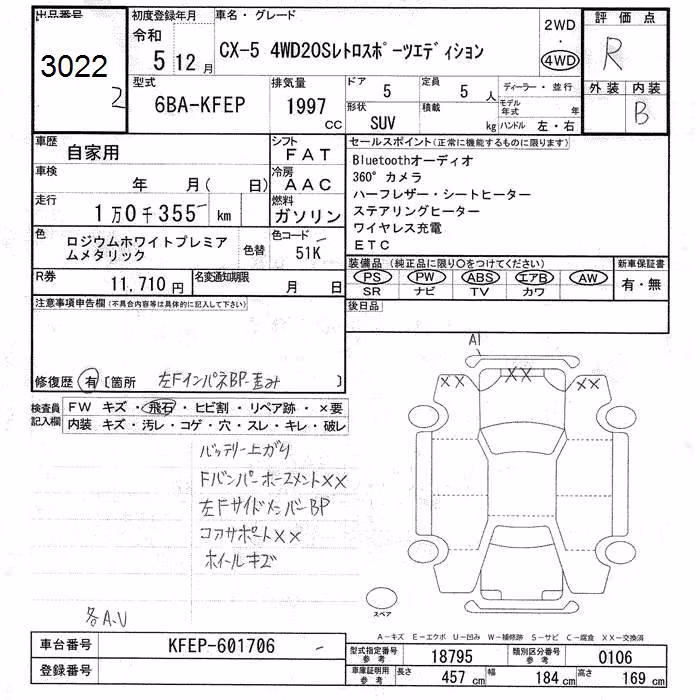 出品番号 初度登録年月 車名・グレード 2WD 評価点
3022
2
令和
5 12月
CX-5 4WD20Sレトロスポーツエディション
・
4WD
R
外装 内装
B
型式 排気量 ドア 定員 ディーラー・並行
6BA-KFEP 1997 CC
5 5人
モデル年式 年
形状 積載
SUV kg ハンドル 左・右
車歴 シフト セールスポイント(正常に機能するものに限ります)
自家用 FAT
Bluetoothオーディオ
車検 冷房 360°カメラ
年 月( 日) AAC
ハーフレザー・シートヒーター
走行 燃料 ステアリングヒーター
1万0千355 km ガソリン
ワイヤレス充電
色 色コード ETC
ロジウムホワイトプレミアムメタリック 色替 51K
装備品(純正品に限り○をつけてください) 新車保証書
PS PW ABS エアB AW 有・無
SR ナビ TV カワ
R券 名変通知期限
11,710円 月 日
注意事項申告欄(不具合内容等は具体的に記入して下さい) 後日品
修復歴 有 [箇所 左FインパネBP-歪み ]
検査員記入欄 FW キズ・飛石・ヒビ割・リペア跡・×要
内装 キズ・汚レ・コゲ・穴・スレ・キレ・破レ
バッテリー上がり
Fバンパーホースメント××
左FサイドメンバーBP
コアサポート××
ホイールキズ
各A、U
A1
××
××
××
スペア
A-キズ E-エクボ U-凹み W-補修跡 S-サビ C-腐食 XX-交換済
車台番号 KFEP-601706 型式指定番号参考 18795 類別区分番号参考 0106
登録番号 車庫証明用参考 長さ 457cm 幅 184cm 高さ 169cm